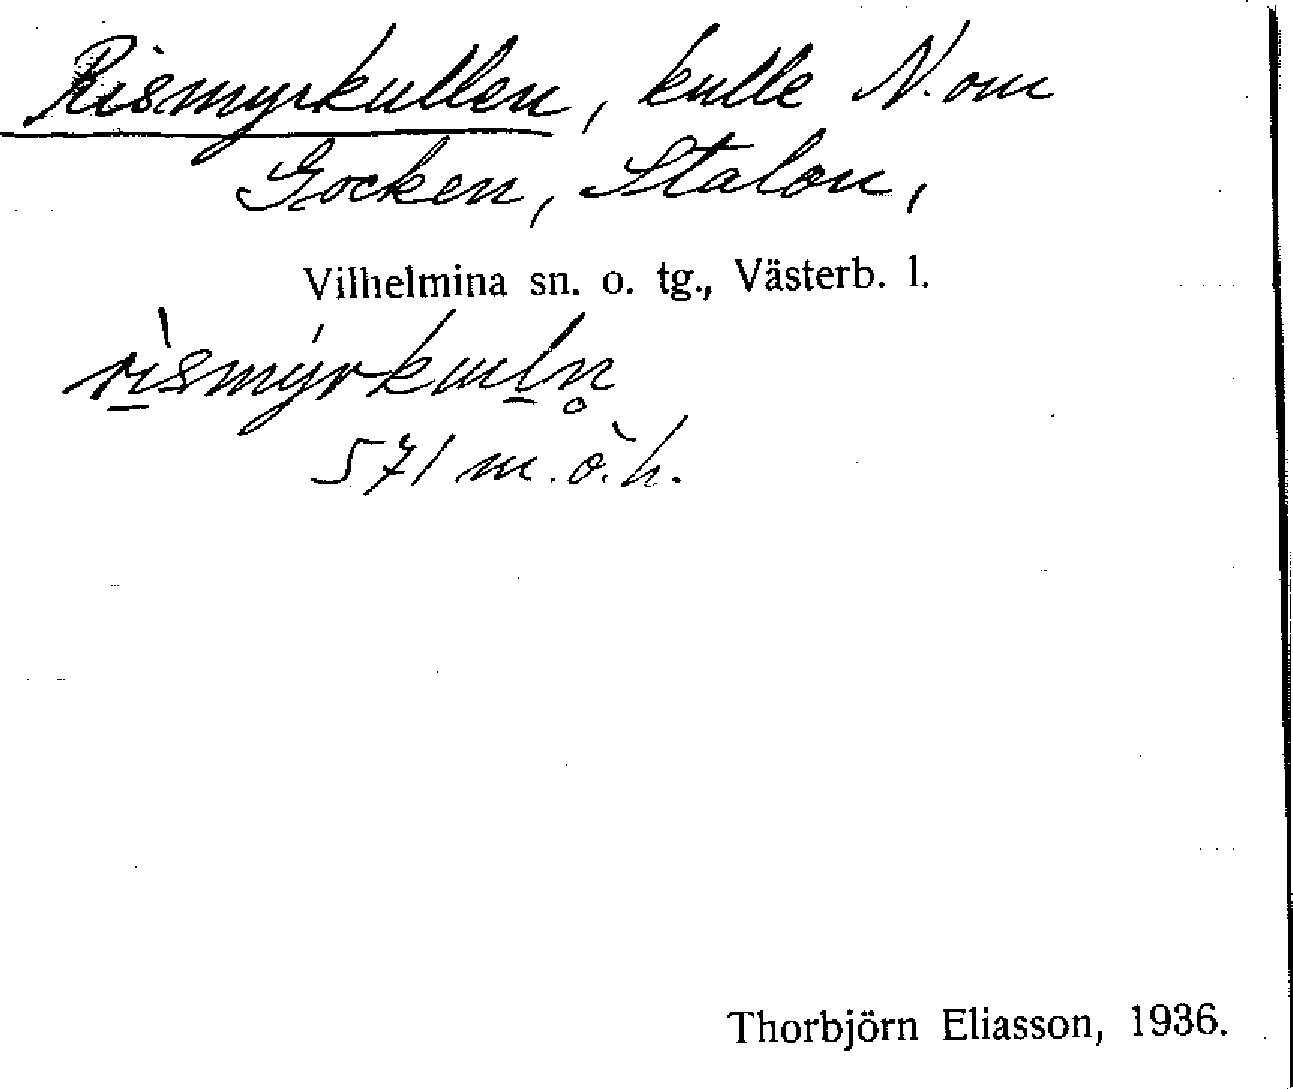 Rismyrkullen, kulle N. om
Gocken, Stalon,
Vilhelmina sn. o. tg., Västerb. l.
rı̀smýrkɯln̥
571 m.ö.h.
Thorbjörn Eliasson, 1936.